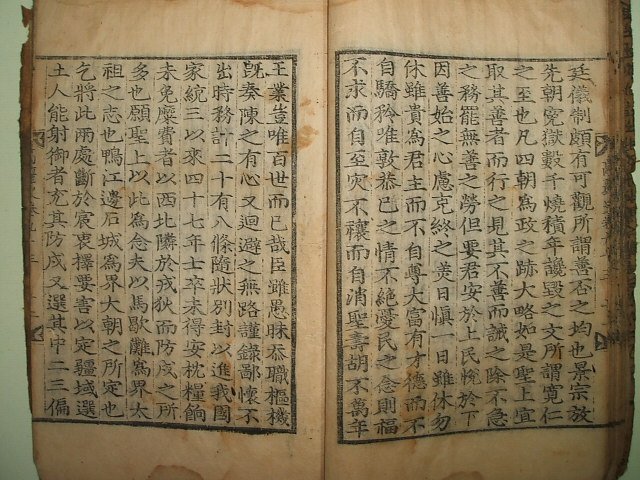 廷儀制頗有可觀所謂善否之均也景宗放
先朝寃獄數千燒積年讒毁之文所謂寬仁
之至也凡四朝爲政之跡大略如是聖上宜
取其善者而行之見其不善而誡之除不急
之務罷無益之勞但要君安於上民悅於下
因善始之心慮克終之美日愼一日雖休勿
休雖貴爲君主而不自尊大富有才德而不
自驕矜唯敦恭己之情不絶憂民之念則福
不求而自至灾不禳而自消聖壽胡不萬年
王業豈唯百世而已哉臣雖愚昧忝職樞機
旣奏陳之有心又廻避之無路謹錄鄙懷不
出時務計二十有八條隨狀別封以進我國
家統三以來四十七年士卒未得安枕糧餉
未免糜費者以西北隣於戎狄而防戍之所
多也願聖上以此爲念夫以馬歇灘爲界太
祖之志也鴨江邊石城爲界大朝之所定也
乞將此兩處斷於宸衷擇要害以定疆域選
土人能射御者充其防戍又選其中二三偏